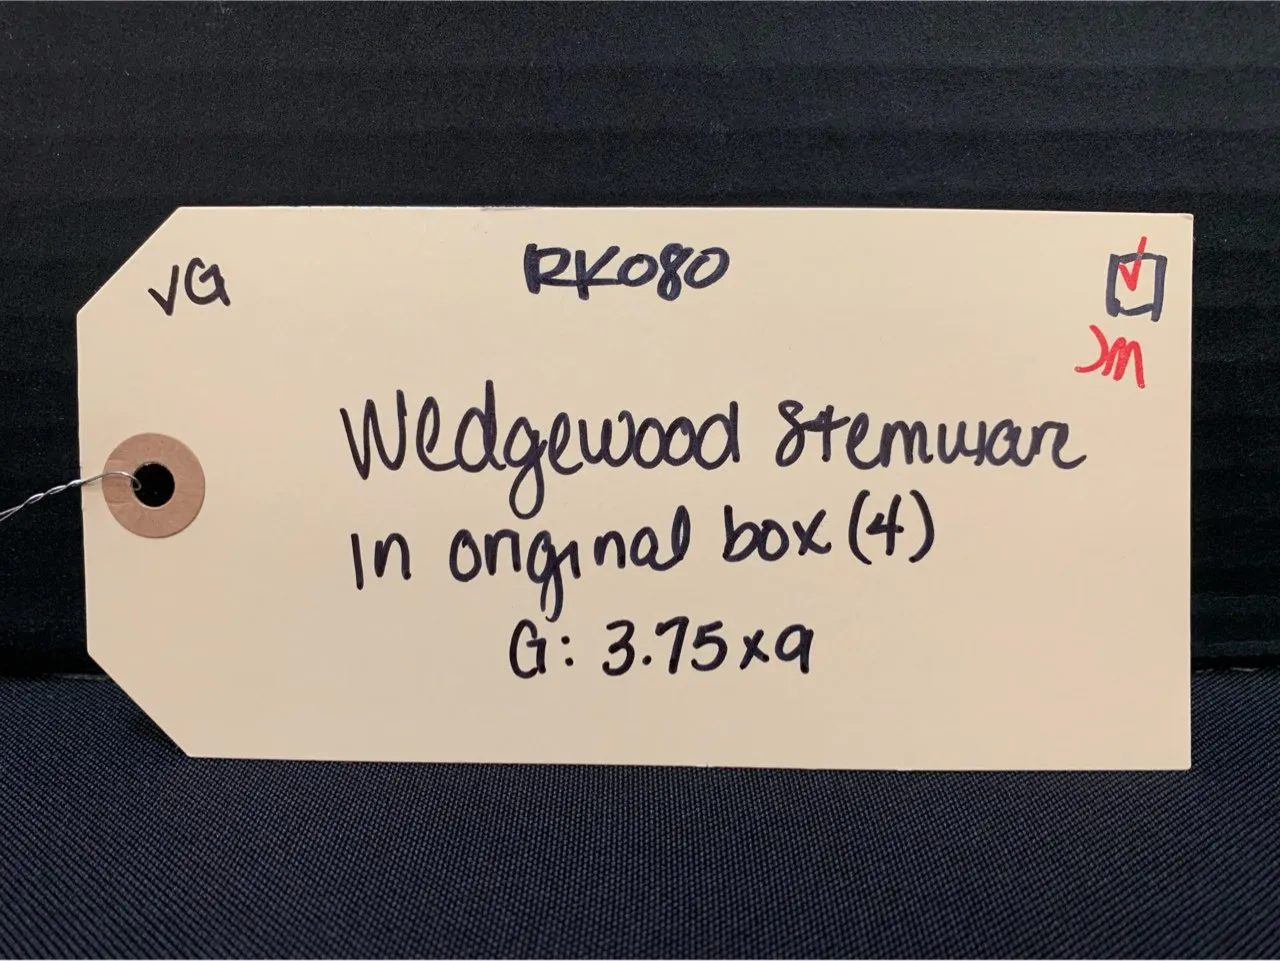 VG RK080 ✓
JM
Wedgewood Stemware
in original box (4)
G: 3.75 x 9